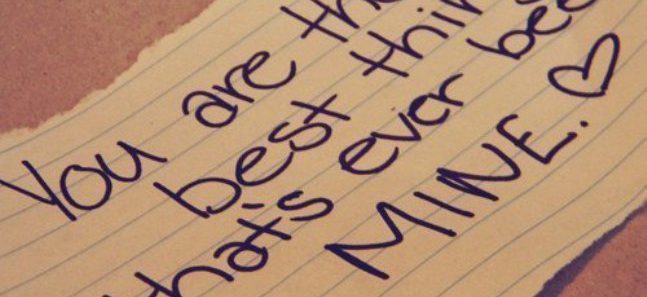 You are the
best thin
that's ever bee
MINE. ♡